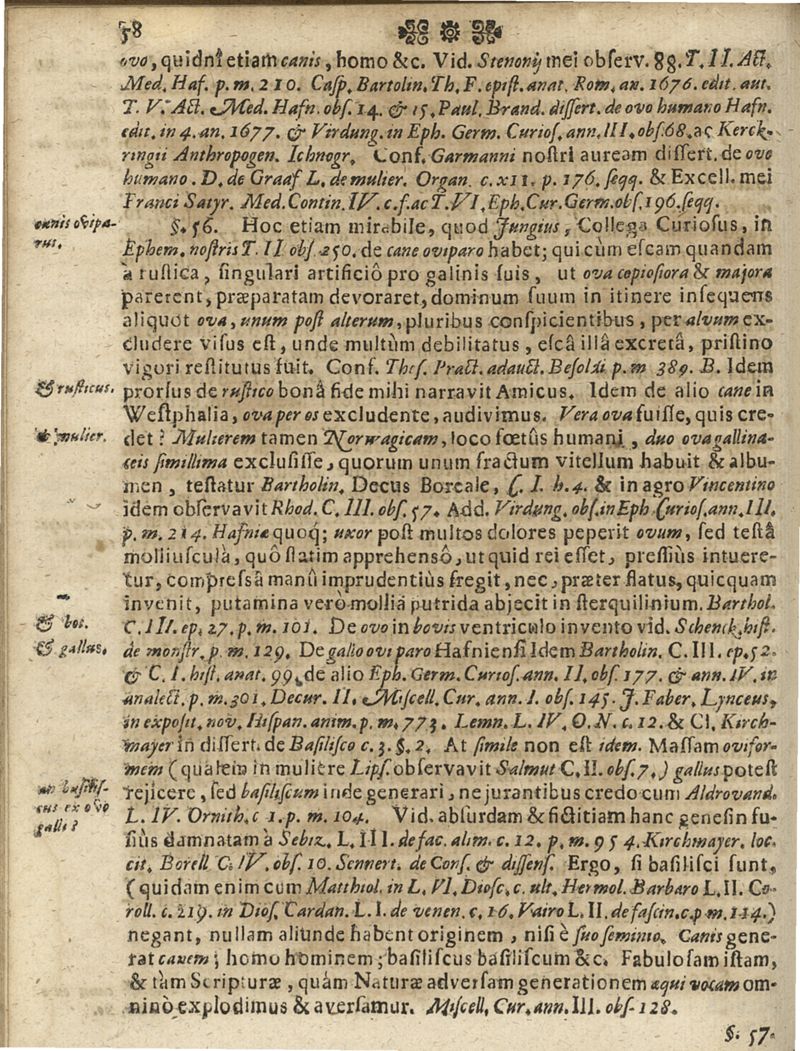 58
ovo, quidnî etiam canis, homo &c. Vid. Stenonij mei observ. 88. T. II. Act.
Med. Haf. p. m. 210. Casp. Bartolin. Th. F. epist. anat. Rom. an. 1676. edit. aut.
T. V. Act. Med. Hafn. obs. 14. & 15. Paul. Brand. dissert. de ovo humano Hafn.
edit. in 4. an. 1677. & Virdung. in Eph. Germ. Curios. ann. III. obs. 68. ac Kerck-
ringii Anthropogen. Ichnogr. Conf. Garmanni nostri auream dissert. de ovo
humano. D. de Graaf L. de mulier. Organ. c. xii. p. 176. seqq. & Excell. mei
Franci Satyr. Med. Contin. IV. c. f. ac T. VI. Eph. Cur. Germ. obs. 196. seqq.
canis ovipa-
rus.
§. 56. Hoc etiam mirabile, quod Jungius, Collega Curiosus, in
Ephem. nostris T. II obs. 250. de cane oviparo habet; qui cùm escam quandam
à rustica, singulari artificiô pro galinis suis, ut ova copiosiora & majora
parerent, præparatam devoraret, dominum suum in itinere insequens
aliquot ova, unum post alterum, pluribus conspicientibus, per alvum ex-
cludere visus est, unde multùm debilitatus, escâ illâ excretâ, pristino
vigori restitutus fuit. Conf. Thes. Pract. adauct. Besoldi p. m 389. B. Idem
& rusticus.
prorsus de rustico bonâ fide mihi narravit Amicus. Idem de alio cane in
Westphalia, ova per os excludente, audivimus. Vera ova fuisse, quis cre-
& mulier.
det? Mulierem tamen Norwagicam, loco fœtûs humani, duo ova gallina-
ceis simillima exclusisse, quorum unum fractum vitellum habuit & albu-
men, testatur Bartholin. Decus Boreale, C. I. h. 4. & in agro Vincentino
idem observavit Rhod. C. III. obs. 57. Add. Virdung. obs. in Eph Curios. ann. III.
p. m. 214. Hafniæ quoq; uxor post multos dolores peperit ovum, sed testâ
molliusculâ, quô statim apprehensô, ut quid rei esset, pressiùs intuere-
tur, compressâ manû imprudentiùs fregit, nec, præter flatus, quicquam
invenit, putamina verò mollia putrida abjecit in sterquilinium. Barthol.
& bos.
C. III. ep. 27. p. m. 101. De ovo in bovis ventriculo invento vid. Schenck. hist.
& gallus.
de monstr. p. m. 129. De gallo oviparo Hafniensi Idem Bartholin. C. III. ep. 52.
& C. I. hist. anat. 99. de alio Eph. Germ. Curios. ann. II. obs. 177. & ann. IV. in
analect. p. m. 301. Decur. II. Miscell. Cur. ann. I. obs. 145. J. Faber, Lynceus,
in exposit. nov. Hispan. anim. p. m. 773. Lemn. L. IV. O. N. c. 12. & Cl. Kirch-
mayer in dissert. de Basilisco c. 3. §. 2. At simile non est idem. Massam ovifor-
mem (qualem in muliere Lips. observavit Salmut C. II. obs. 7.) gallus potest
an basilis-
cus ex ovo
galli?
rejicere, sed basiliscum inde generari, ne jurantibus credo cum Aldrovand.
L. IV. Ornith. c 1. p. m. 104. Vid. absurdam & fictitiam hanc genesin fu-
siùs damnatam à Sebiz. L. III. de fac. alim. c. 12. p. m. 954. Kirchmayer. loc.
cit. Borell C. IV. obs. 10. Sennert. de Cons. & dissens. Ergo, si basilisci sunt,
(quidam enim cum Matthiol. in L. VI. Diosc. c. ult. Hermol. Barbaro L. II. Co-
roll. c. 219. in Dios. Cardan. L. I. de venen. c. 16. Vairo L. II. de fascin. c. p m. 114.)
negant, nullam aliunde habent originem, nisi è suo seminio. Canis gene-
rat canem; homo hominem; basiliscus basiliscum &c. Fabulosam istam,
& tàm Scripturæ, quàm Naturæ adversam generationem æquivocam om-
ninò explodimus & aversamur. Miscell. Cur. ann. III. obs. 128.
§. 57.